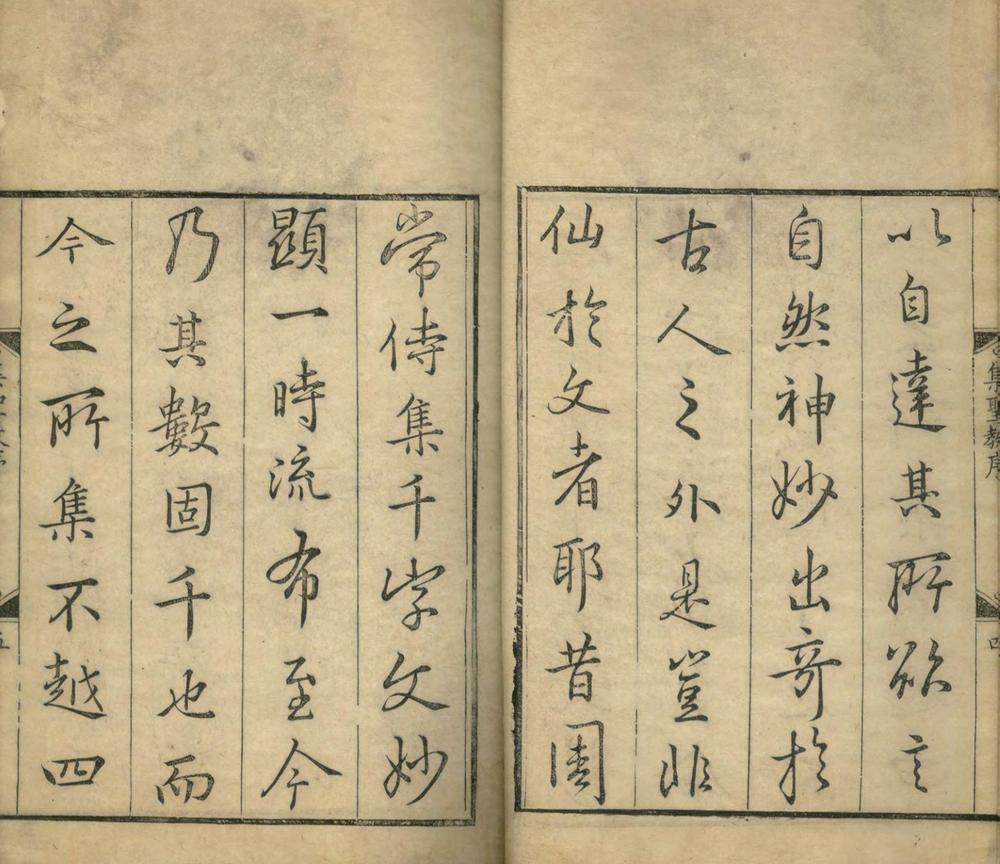 以自達其所欲言
自然神妙出奇於
古人之外是豈非
仙於文者耶昔周
常侍集千字文妙
顯一時流布至今
乃其數固千也而
今之所集不越四
集聖教序
四
五